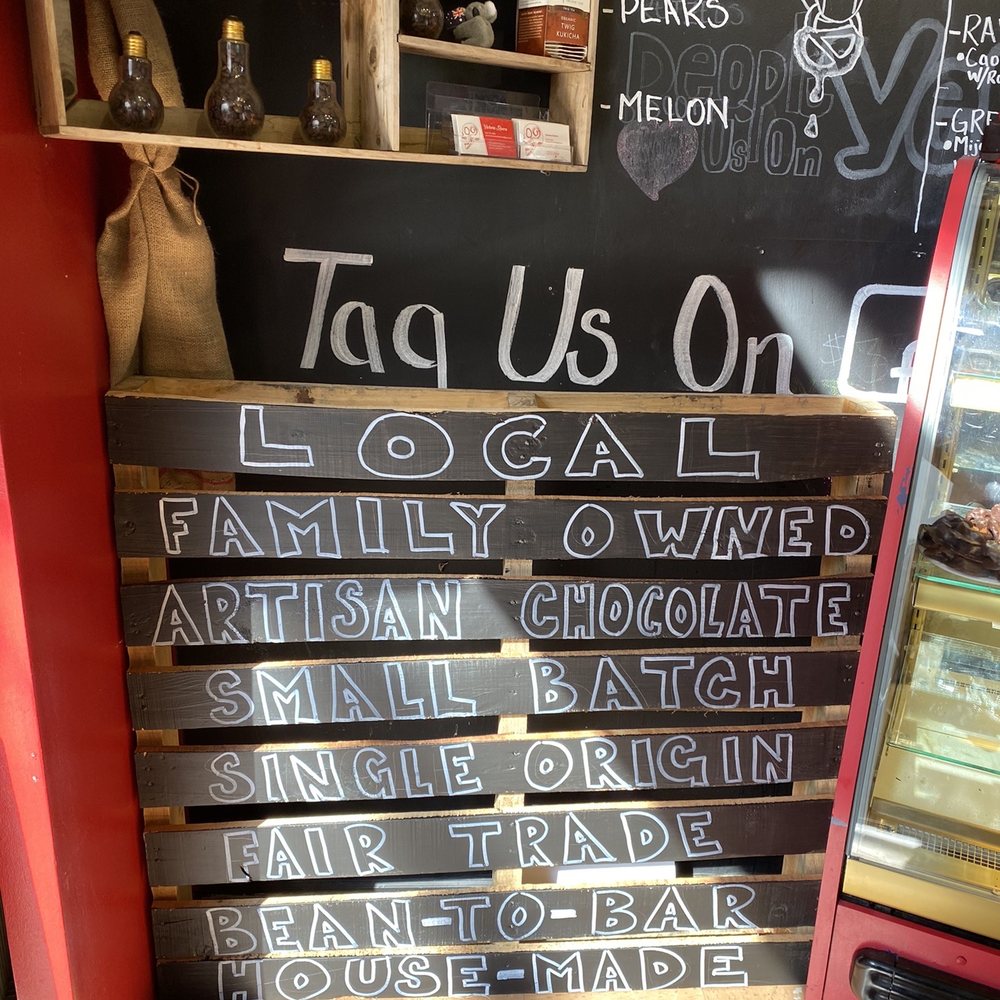 -PEARS
-MELON
People
Us On
ORGANIC
TWIG
KUKICHA
Tag Us On
LOCAL
FAMILY OWNED
ARTISAN CHOCOLATE
SMALL BATCH
SINGLE ORIGIN
FAIR TRADE
BEAN-TO-BAR
HOUSE-MADE